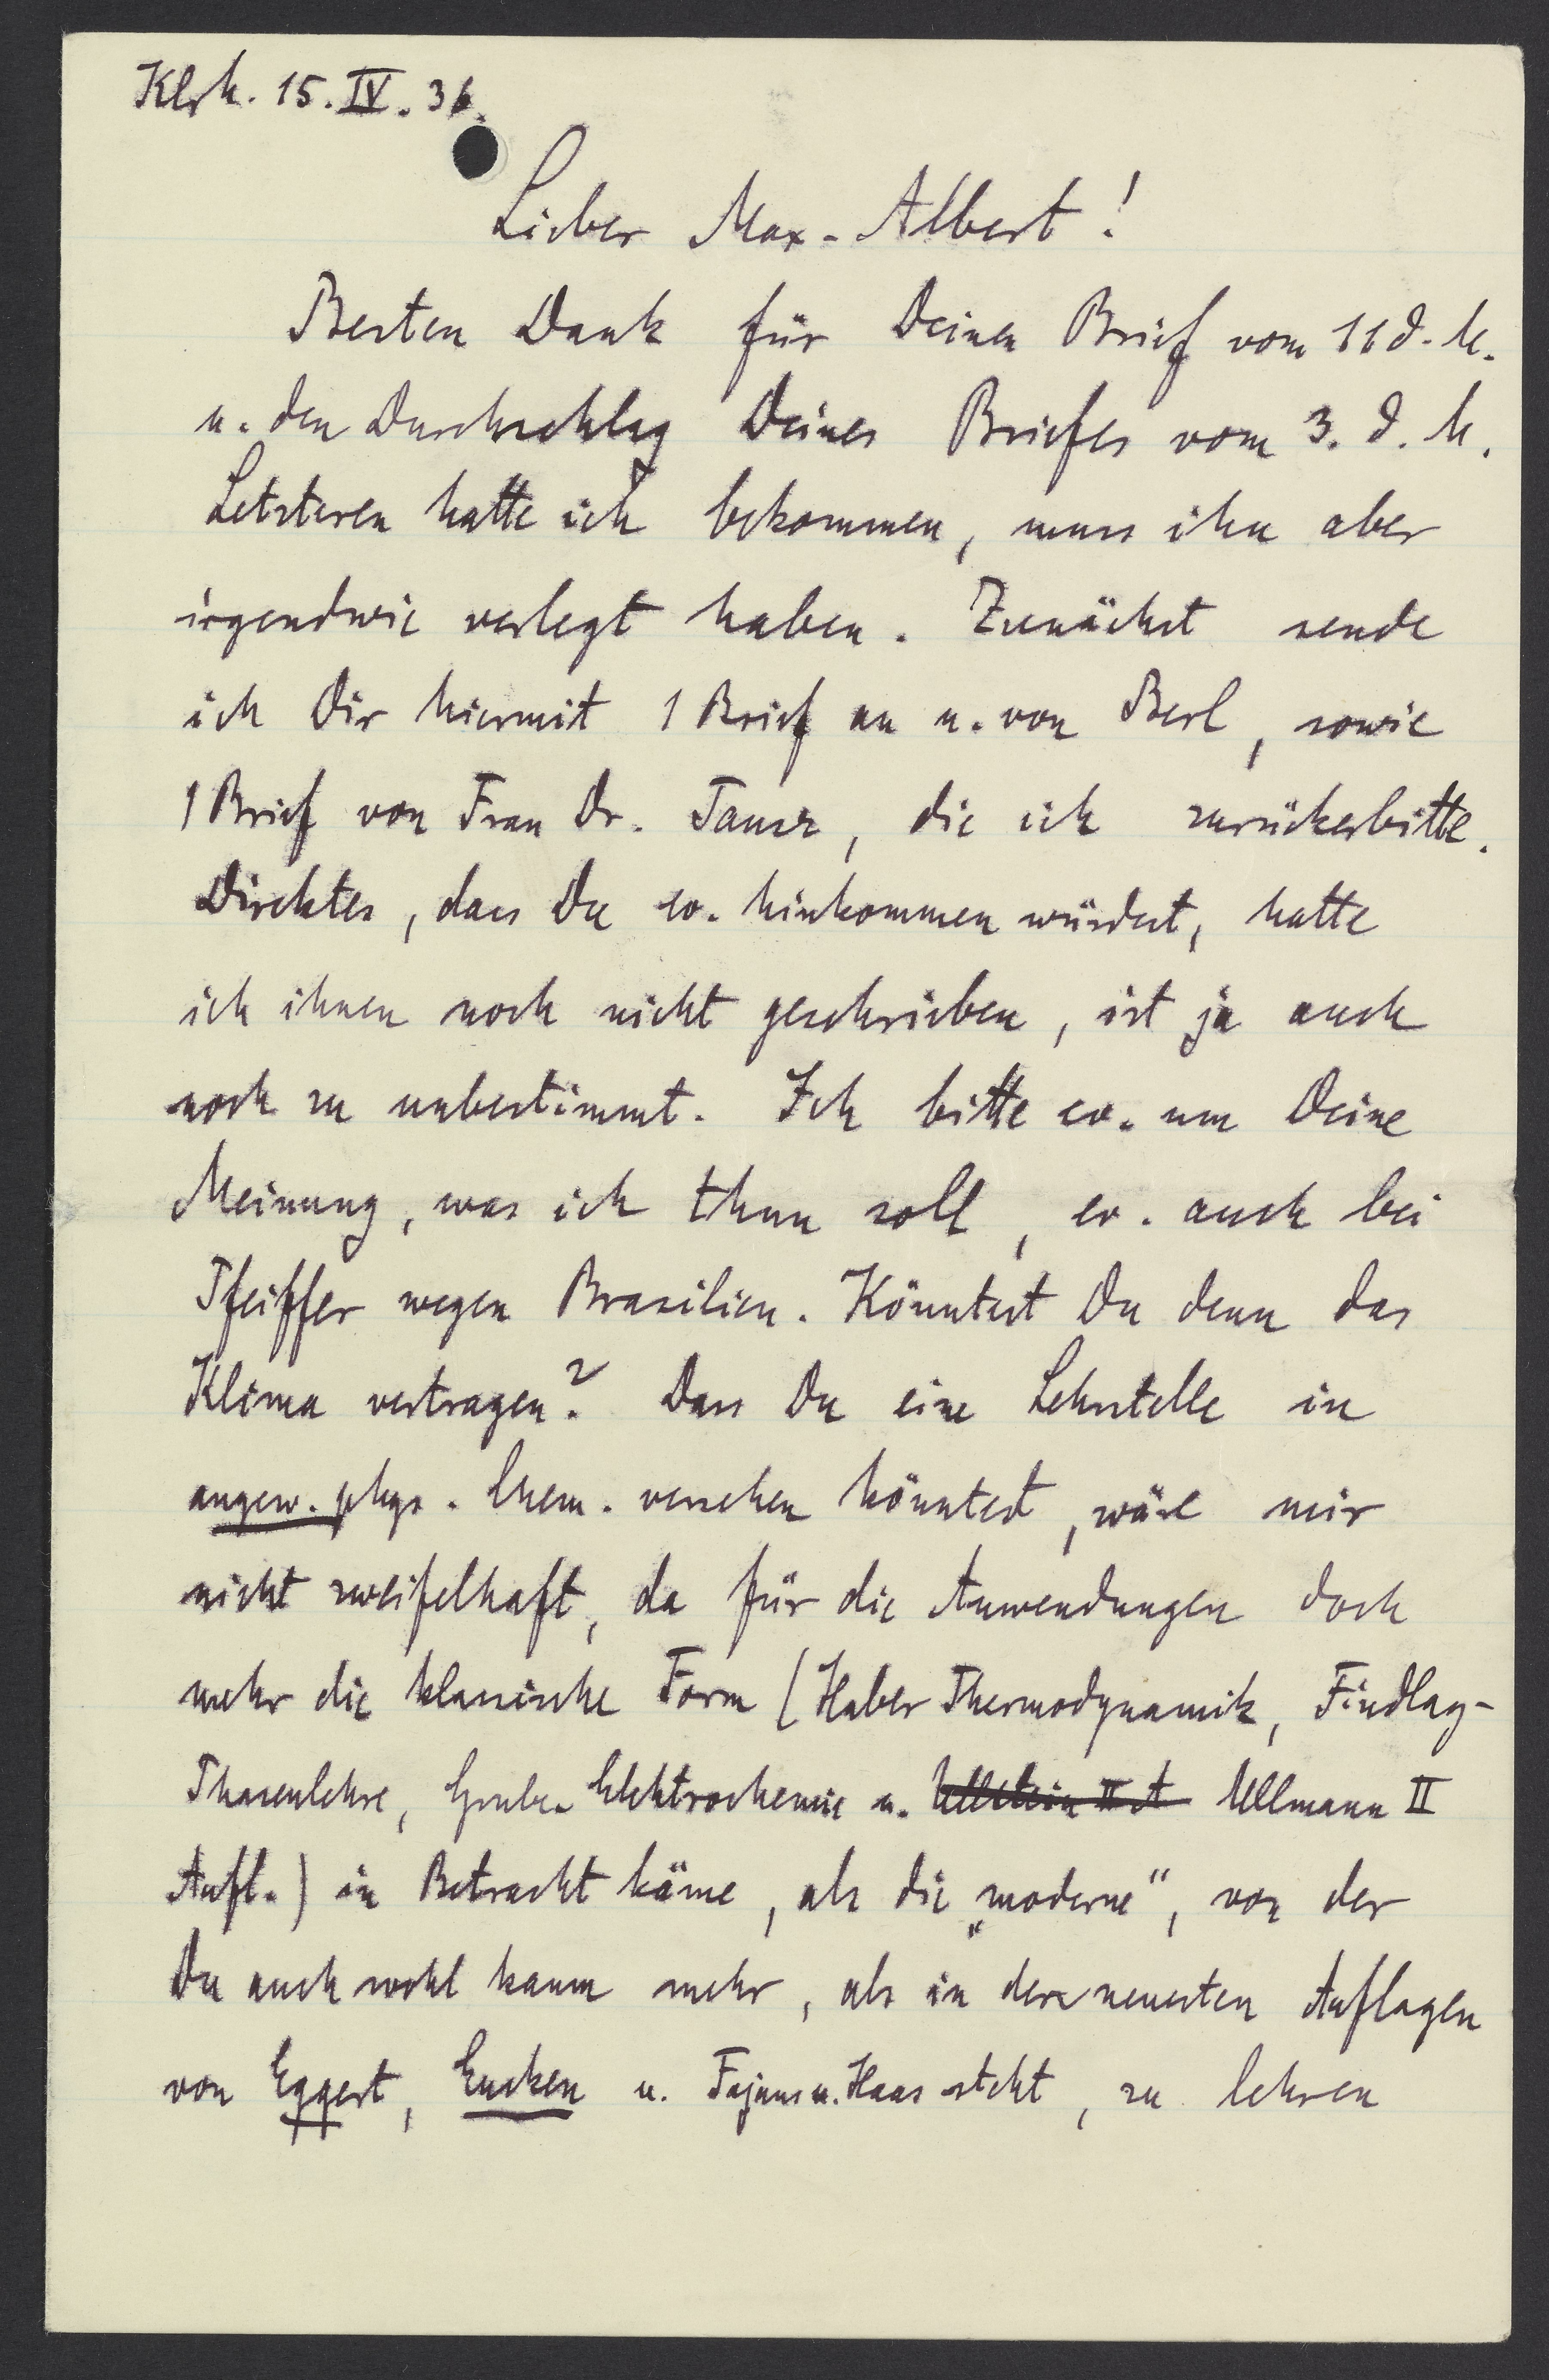 Klrh. 15. IV. 36.
Lieber Max-Albert!
Besten Dank für Deinen Brief vom 11 d. M.
u. den Durchschlag Deines Briefes vom 3. d. M.
Letzteren hatte ich bekommen, muss ihn aber
irgendwie verlegt haben. Zunächst sende
ich Dir hiermit 1 Brief an u. von Berl, sowie
1 Brief von Frau Dr. Tausz, die ich zurückerbitte.
Direktes, dass Du ev. hinkommen würdest, hatte
ich ihnen noch nicht geschrieben, ist ja auch
noch zu unbestimmt. Ich bitte ev. um Deine
Meinung, was ich thun soll, ev. auch bei
Pfeiffer wegen Brasilien. Könntest Du denn das
Klima vertragen? Dass Du eine Lehrstelle in
angew. phys. Chem. versehen könntest, wäre mir
nicht zweifelhaft, da für die Anwendungen doch
mehr die klassische Form (Haber Thermodynamik, Findlay-
Phasenlehre, Grube Elektrochemie u. Ullstein II A Ullmann II
Aufl.) in Betracht käme, als die „moderne“, von der
Du auch wohl kaum mehr, als in den neuesten Auflagen
von Eggert, Eucken u. Fajans u. Haas steht, zu lehren